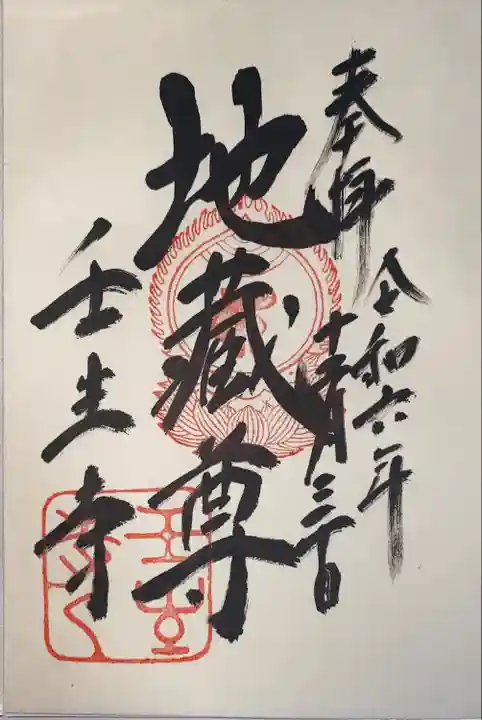 奉拝
令和六年
十一月三日
地蔵尊
壬生寺